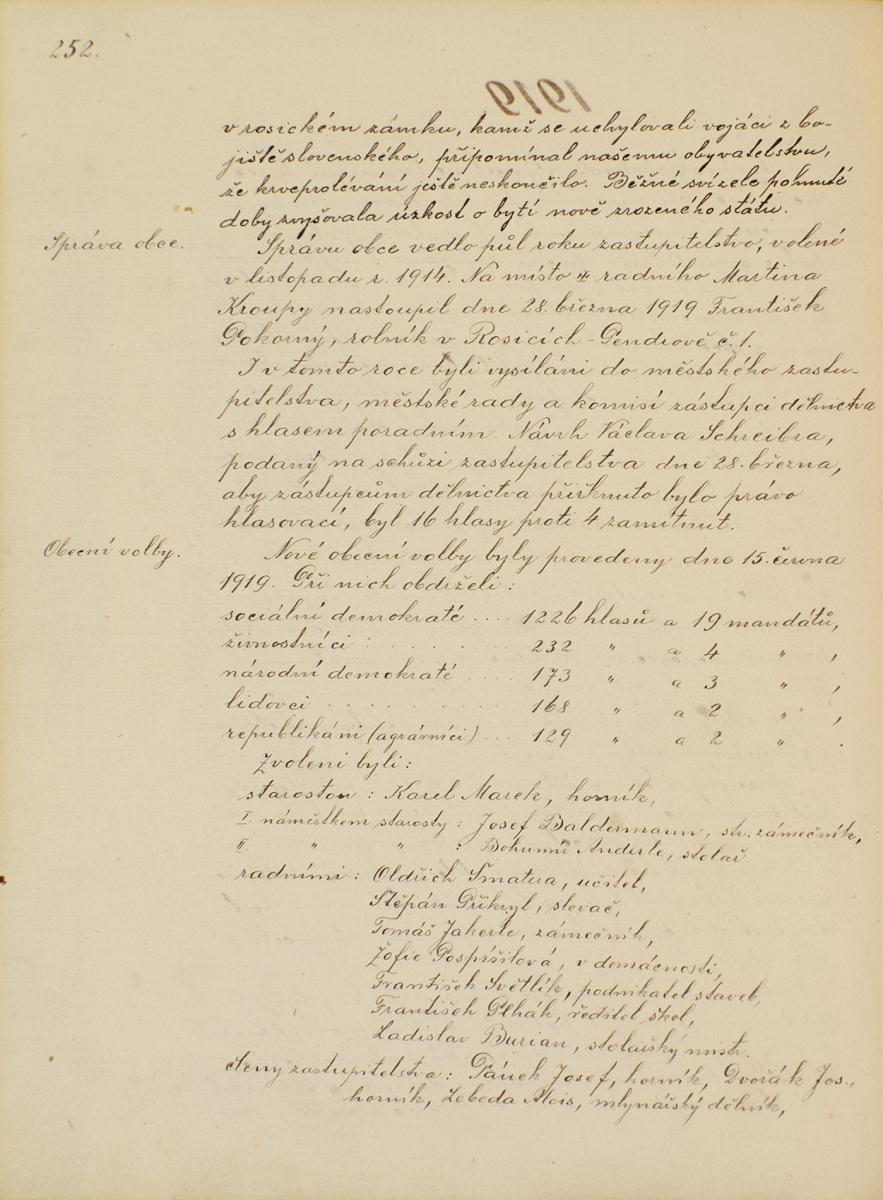 252.
1919
v rosickém zámku, kamž se uchylovali vojáci z bo-
jiště slovenského, připomínal našemu obyvatelstvu,
že krveprolévání ještě neskončilo. Běžné svízele pohnuté
doby zvyšovala úzkost o bytí nově zrozeného státu.
Správa obce.
Správu obce vedlo půl roku zastupitelstvo, volené
v listopadu r. 1914. Na místo radního Martina
Kroupy nastoupil dne 28. března 1919 František
Pokorný, rolník v Rosicích-Pendrově č. 1.
I v tomto roce byli vysíláni do městského zastu-
pitelstva, městské rady a komisí zástupci dělnictva
s hlasem poradním. Návrh Václava Schreibra,
podaný na schůzi zastupitelstva dne 28. března,
aby zástupcům dělnictva přiřknuto bylo právo
hlasovací, byl 16 hlasy proti 4 zamítnut.
Obecní volby.
Nové obecní volby byly provedeny dne 15. června
1919. Při nich obdrželi:
sociální demokraté .... 1226 hlasů a 19 mandátů,
živnostníci ........ 232 " a 4 " ,
národní demokraté .... 173 " a 3 " ,
lidovci .......... 168 " a 2 " ,
republikáni (agrárníci) ... 129 " a 2 " .
Zvoleni byli:
starostou : Karel Marek, horník,
I. náměstkem starosty : Josef Baldermann, str. zámečník,
II. " " : Bohumil Anderle, stolař
radními : Oldřich Šmatera, učitel,
Štěpán Přikryl, slevač,
Tomáš Jakerle, zámečník,
Žofie Pospíšilová, v domácnosti,
František Světlík, podnikatel staveb,
František Plhák, ředitel škol,
Ladislav Burian, stolařský mistr.
členy zastupitelstva : Pánek Josef, horník, Dvořák Jos.,
horník, Lebeda Alois, mlynářský dělník,